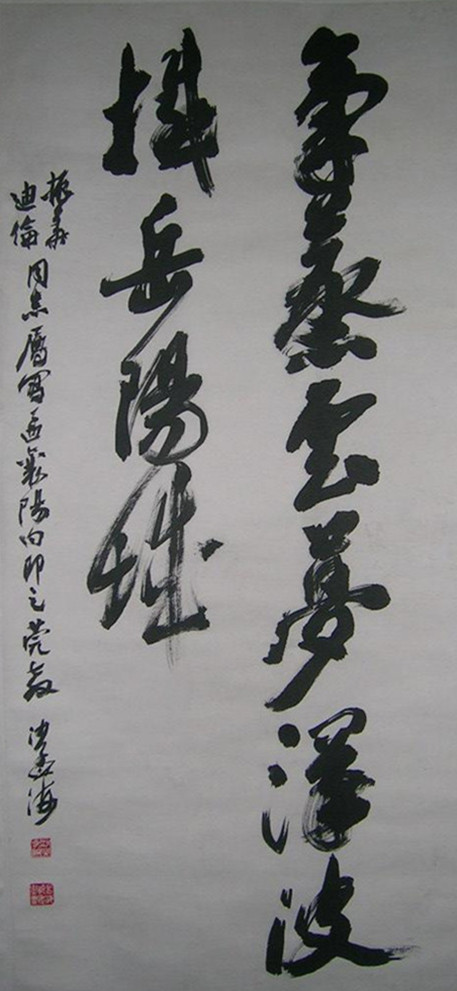 氣蒸雲夢澤波
撼岳陽城
振義
迪倫同志屬寫孟襄陽句即乞莞教 沙孟海